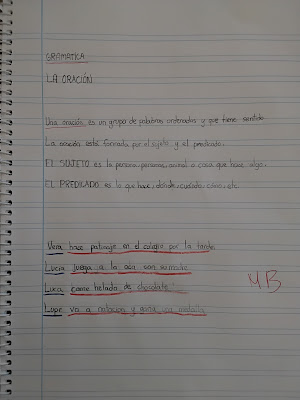 GRAMÁTICA
LA ORACIÓN
Una oración es un grupo de palabras ordenadas y que tiene sentido.
La oración está formada por el sujeto y el predicado.
EL SUJETO es la persona, personas, animal o cosa que hace algo.
EL PREDICADO es lo que hace, dónde, cuándo, cómo, etc.
Vera hace patinaje en el colegio por la tarde.
Lucía juega a la oca con su madre.
Luca come helado de chocolate.
Lope va a natación y gana la medalla
MB